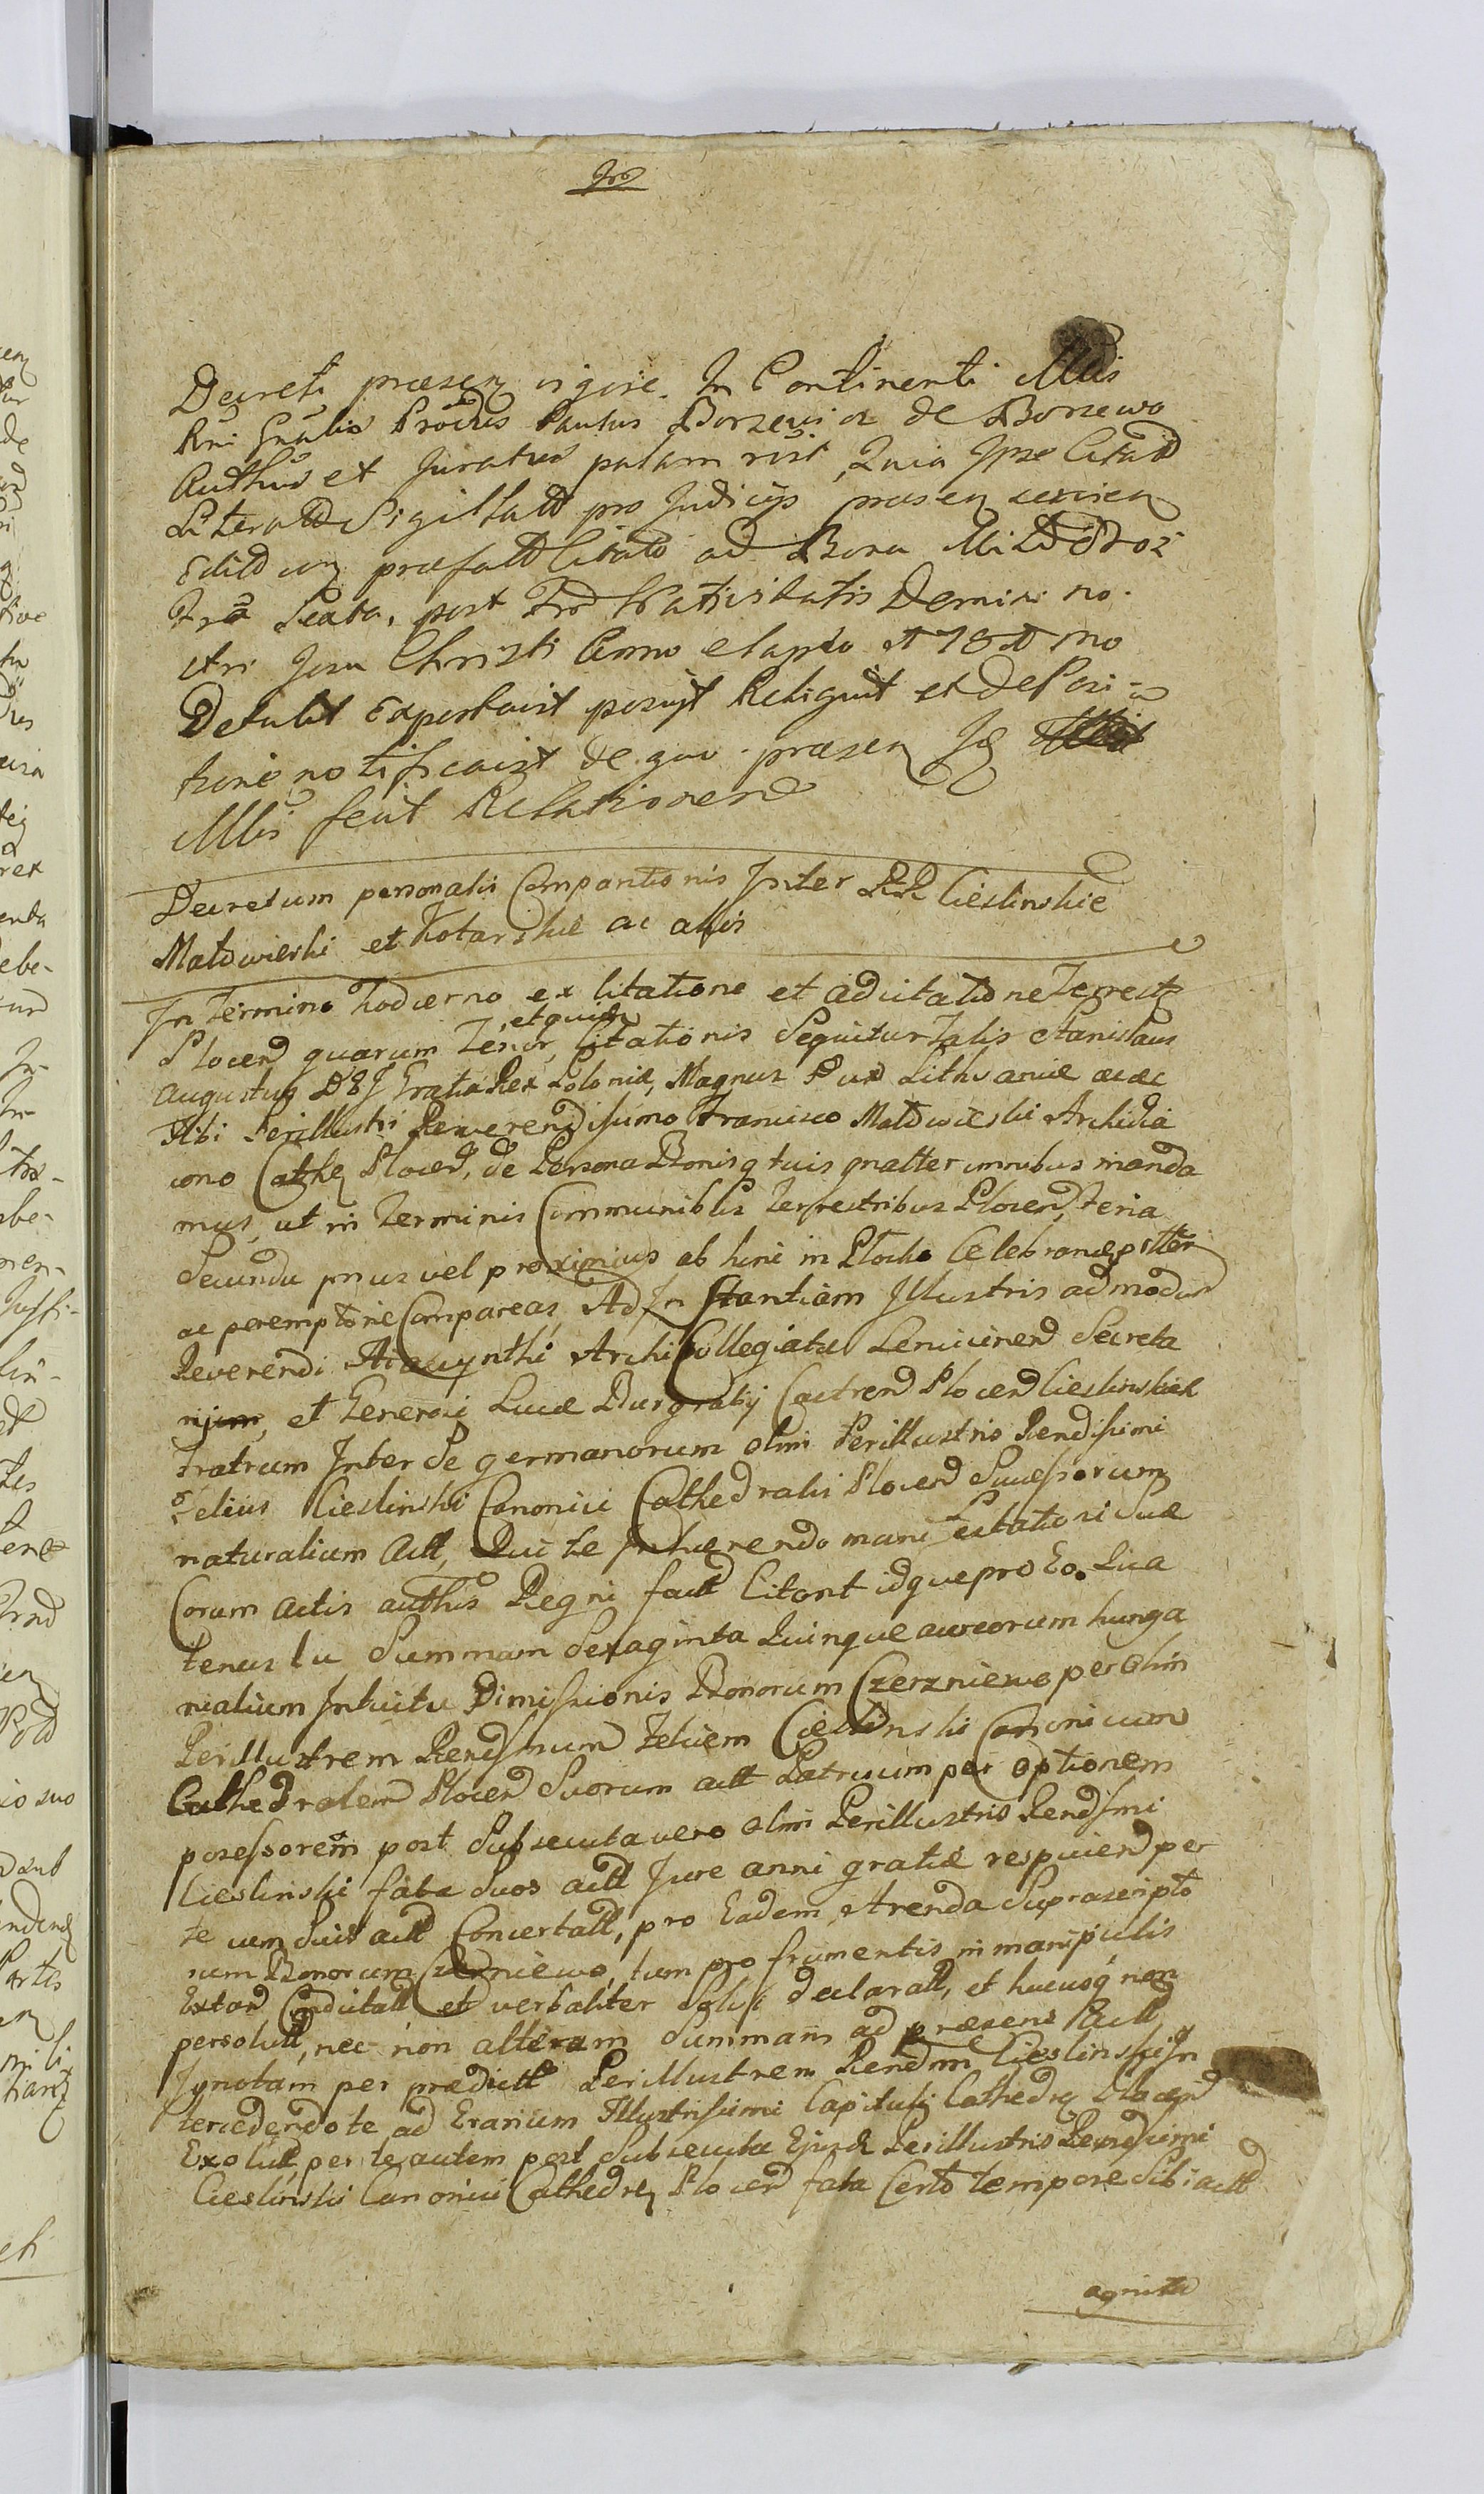 Decreti præsen vigore. In Continenti Mtis
Rni Gnalis Providus Paulus Borzewicz de Borzewo
Authus et Juratus palam rt, Quia Ipse Citatt
Literatt Sigillatt pro Judicijs præsen
Edit cum præfatt Citatt ad Bona
Fria Sexta, post Natisitatis Domini no-
stri Jesu Christi Anno elapso
Detulit Exportavit posuit Reliquit et dePosi-
tione notificavit de quo præsen
fecit Relationem
Decretum personalis Comparitionis Inter RR Cieslinskie
Matdwieski et Kotarskie ac alijs
In Termino hodierno ex Citatione et adcitatione Terrestr
Plocen quarum Tenor, et quidem Citationis Sequitur Talis Stanislaus
Augustus DEJ Gratia Rex Poloniæ, Magnus Dux Lithvaniæ &c &c
Tibi Perillustri Reverendissimo Francisco Matdwieski Archidia
cono Cathe Plocen, de Persona Bonisq tuis gnalter omnibus manda
mus, ut in Terminis Communibus Terrestribus Plocen, Feria
Secunda prius vel proximius ab hinc in Plocko Celebrand pltter
ac peremptorie Compareas, Ad Instantiam Illustris admodum
Reverendi Hiacynthi Archi Collegiatæ Lencicien Secreta
rij, et Generosi Lucæ Burgrabij Castren Plocen Cieslinskich
Fratrum Inter Se germanorum olim Perillustris Rendissimi
Felicis Cieslinski Canonici Cathedralis Plocen Successorum
naturalium Actt, Qui te Inhærendo manifestationi Suæ
Coram Actis authis Regni fact Citant idque pro Eo. Qua
tenus tu Summam Sexaginta Quinque aureorum hunga
ricalium Intuitu Dimissionis Bonorum Czerzniewo per olim
Perillustrem Rendssimum Felicem Cieslinski Canonicum
Cathedralem Plocen Suorum actt Patruum per optionem
possessorem post Subsecuta vero olim Perillustris Rendssimi
Cieslinski fata Suos actt Jure anni gratiæ respicien per
te cum Suis actt Concertatt, pro Eadem Arenda Suprascripto
rum Bonorum Czerniewo, tum pro frumentis in manipulis
Extan Conductatt et verbaliter Solvi declaratt, et hucusq non
persolutt, nec non alteram Summam ad præsens Actt
Ignotam per prædictt Perillustrem Rendum Cieslinski In
tercedendo te ad Erarium Illustrissimi Capituli Cathedra Plocen
Exolutt, per te autem post Subsecuta Ejusd Perillustris Rendissimi
Cieslinski Canonici Cathedra Plocen fata Certo tempore Sibi actt
agnita